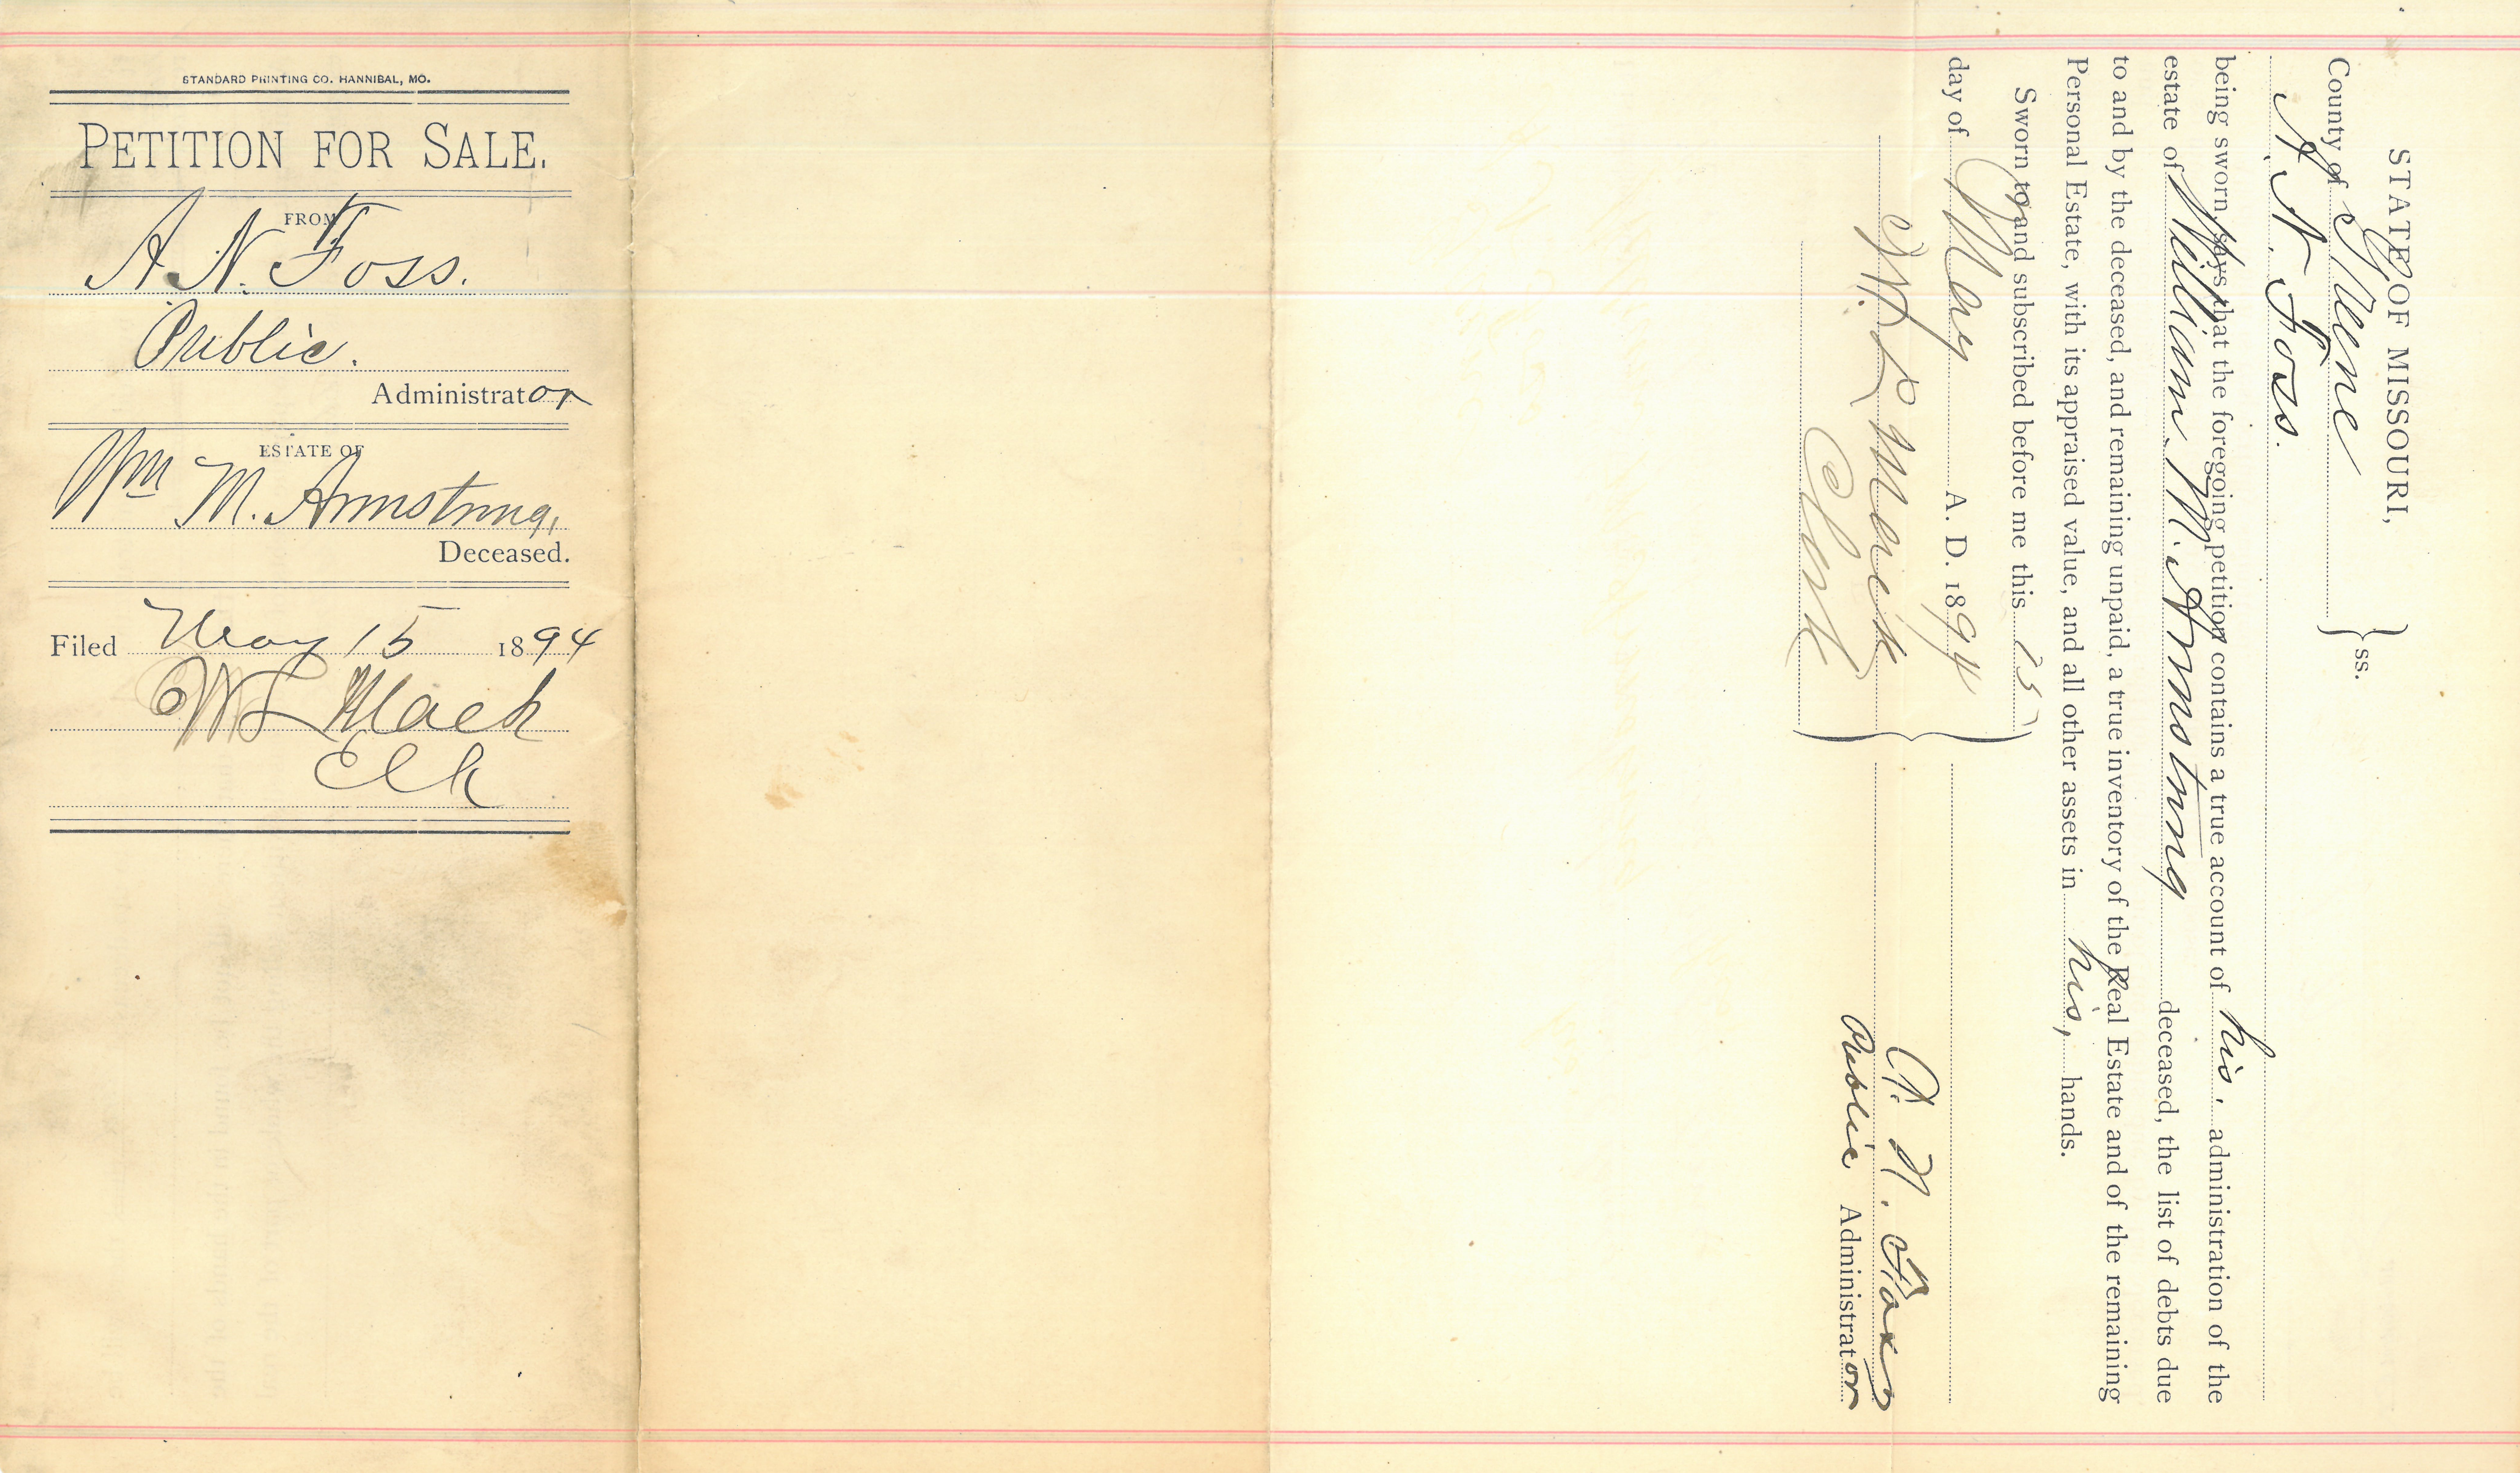 STANDARD PRINTING CO. HANNIBAL, MO.
PETITION FOR SALE.
FROM
A. N. Foss.
Public.
Administrator
ESTATE OF
Wm M. Armstrong,
Deceased.
Filed May 15 1894
W L Mack
Clk
STATE OF MISSOURI,
County of Greene } ss.
A. N. Foss.
being sworn says that the foregoing petition contains a true account of his administration of the
estate of William M. Armstrong deceased, the list of debts due
to and by the deceased, and remaining unpaid, a true inventory of the Real Estate and of the remaining
Personal Estate, with its appraised value, and all other assets in his, hands.
Sworn to and subscribed before me this 15
day of May A. D. 1894
W L Mack
Clerk
A. N. Foss
Public Administrator